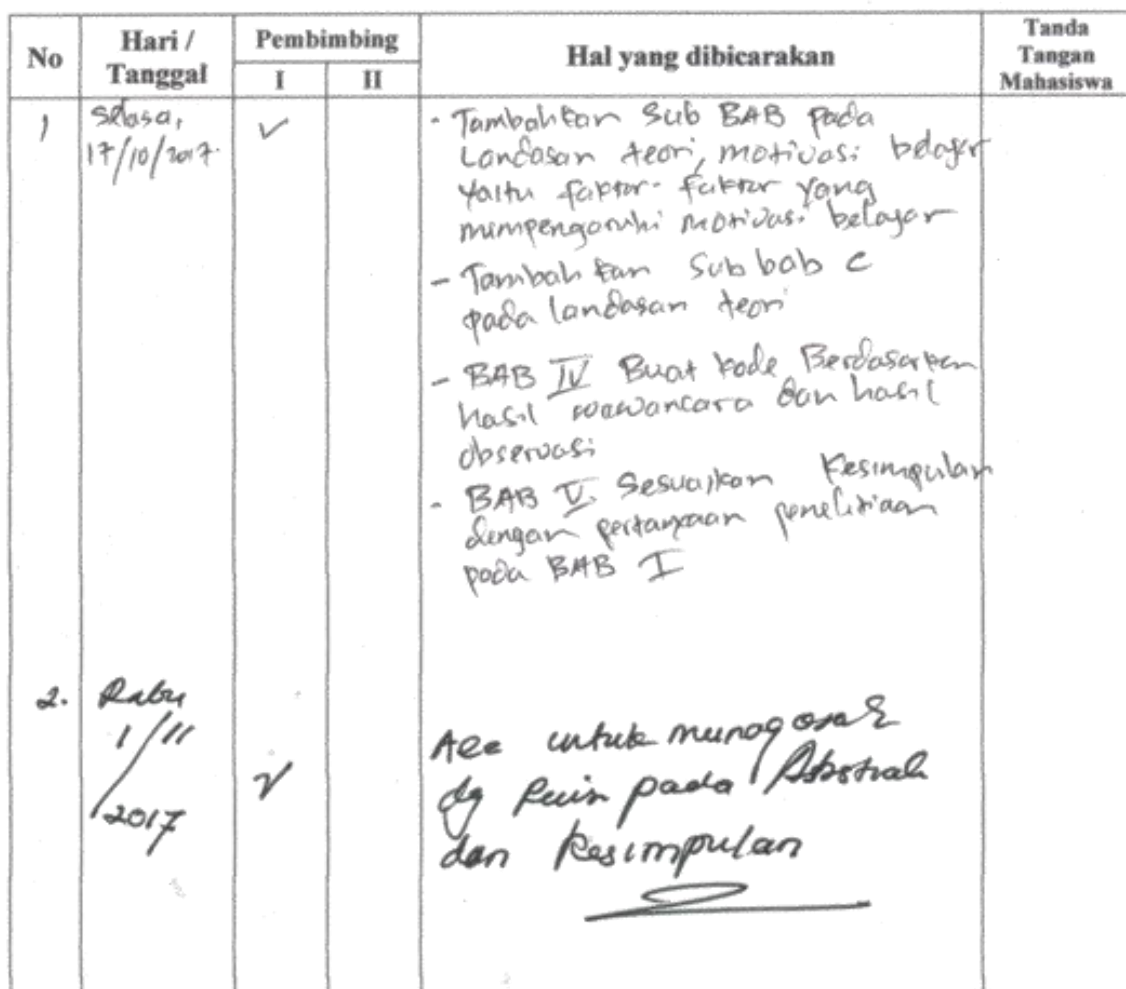 No
Hari /
Tanggal
Pembimbing
I
II
Hal yang dibicarakan
Tanda
Tangan
Mahasiswa
1
Selasa,
17/10/2017.
✓
- Tambahkan Sub BAB pada
Landasan teori, motivasi belajar
yaitu faktor-faktor yang
mempengaruhi motivasi belajar
- Tambahkan Sub bab C
pada landasan teori
- BAB IV Buat kode Berdasarkan
hasil wawancara dan hasil
observasi
- BAB V. Sesuaikan Kesimpulan
dengan pertanyaan penelitiaan
pada BAB I
2.
Rabu
1/11
/2017
✓
Acc untuk munaqosah
dg pada Abstrak
dan Kesimpulan